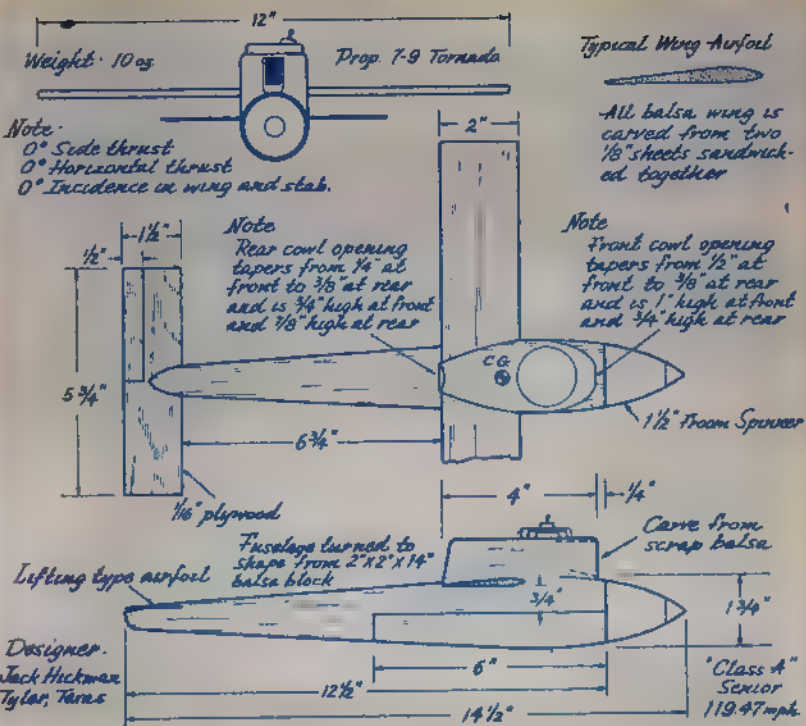 12"
Weight · 10 oz
Prop. 7-9 Tornado
Typical Wing Airfoil
All balsa wing is
carved from two
1/8" sheets sandwich-
ed together
Note ·
0° Side thrust
0° Horizontal thrust
0° Incidence in wing and stab.
2"
1 1/2"
1/2"
Note
Rear cowl opening
tapers from 1/4" at
front to 3/8" at rear
and is 3/4" high at front
and 7/8" high at rear
Note
Front cowl opening
tapers from 1/2" at
front to 3/8" at rear
and is 1" high at front
and 3/4" high at rear
CG
5 3/4"
6 3/4"
1 1/2" Froom Spinner
1/16" plywood
4"
1/4"
Carve from
scrap balsa
Fuselage turned to
shape from 2"x2"x14"
balsa block
Lifting type airfoil
3/4"
1 3/4"
Designer.
Jack Hickman
Tyler, Texas
6"
12 1/2"
14 1/2"
"Class A"
Senior
119.47 mph.